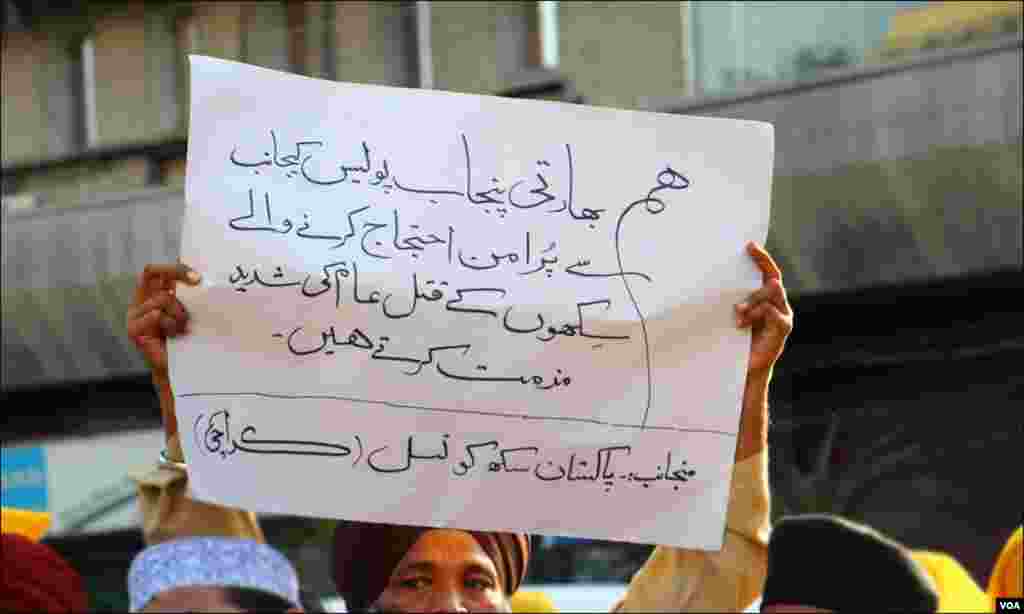 ہم بھارتی پنجاب پولیس کیجانب
سے پُر امن احتجاج کرنے والے
سِکھوں کے قتل عام کی شدید
مذمت کرتے ھیں۔
منجانب:۔ پاکستان سکھ کونسل (کراچی)
VOA